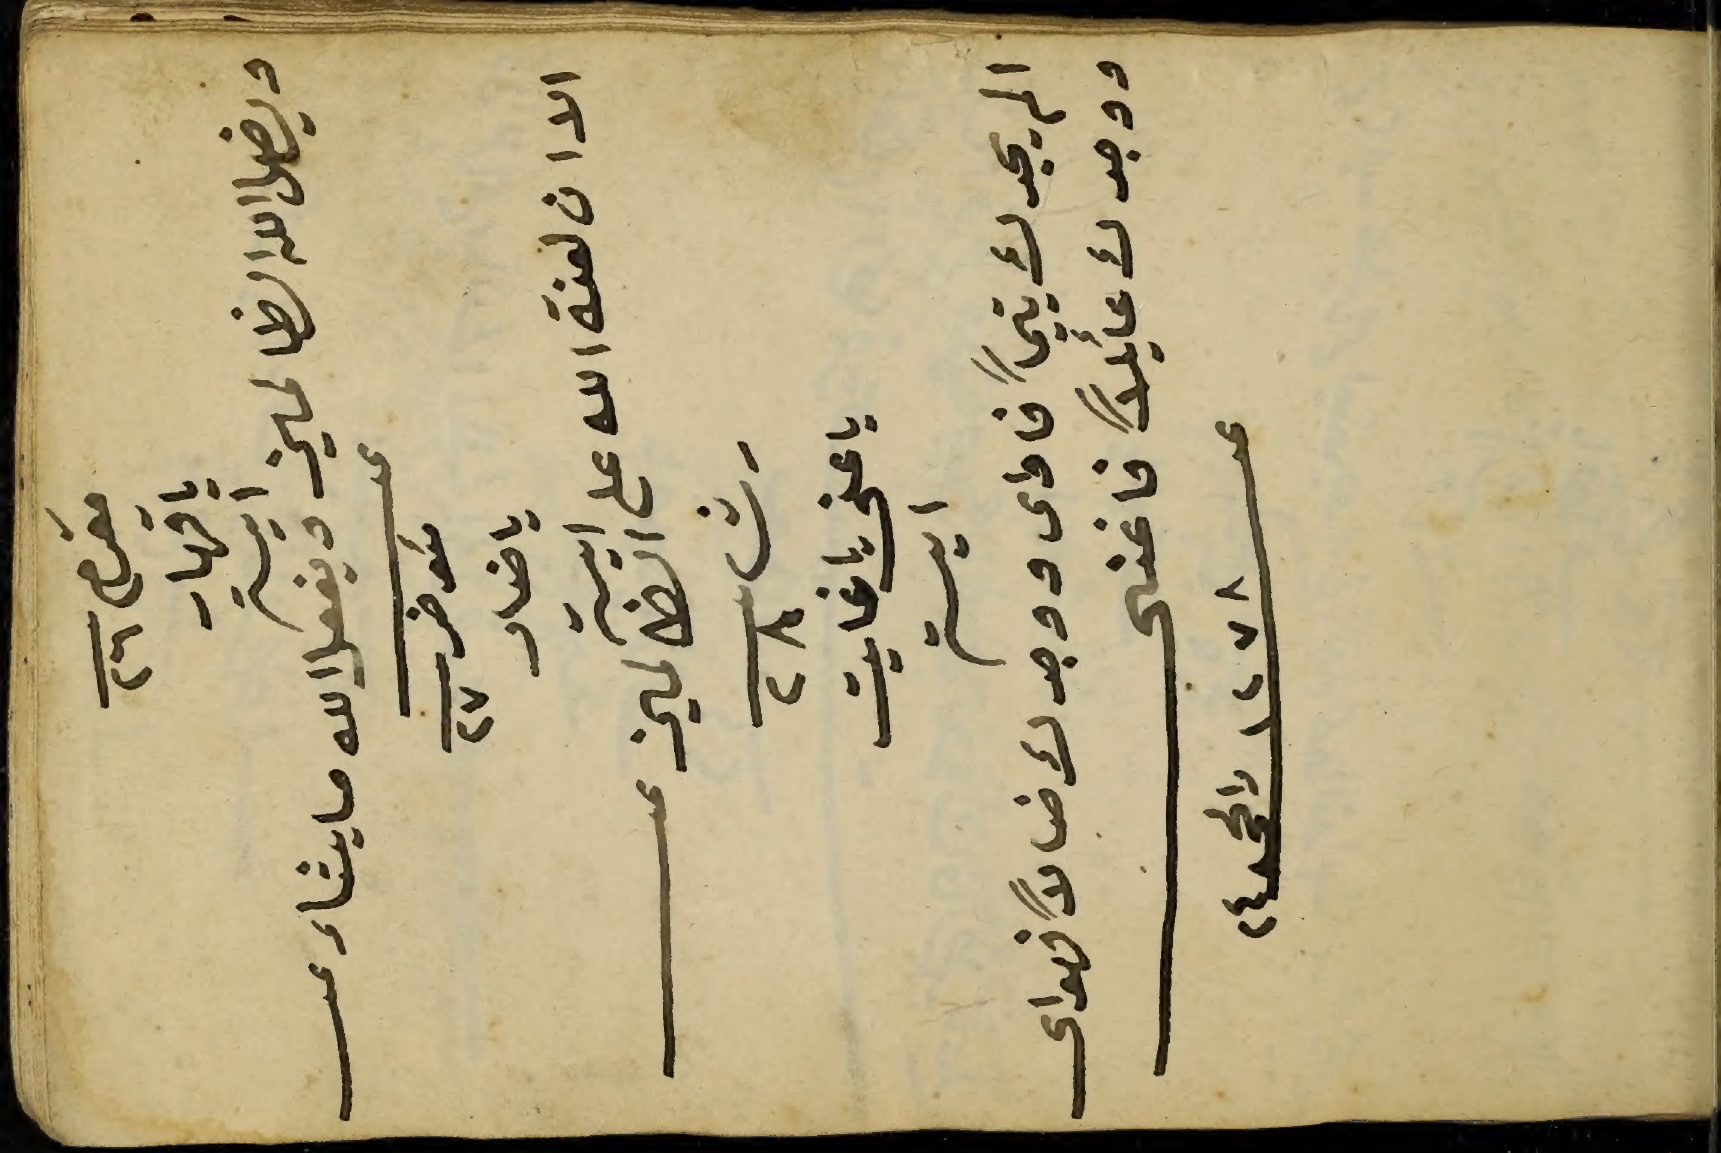 ٢٦
يا قهار
اية
ويضل الله الظالمين
ويفعل الله ما يشاء
٢٧
يا ضار
اية
الا ان لعنة الله على
الظالمين
٢٨
يا غنى يا غايث
اية
الم يجدك يتيماً فاوى ووجدك ضالاً فهداى
ووجدك عائيلاً فاغنى
١٢٧٨